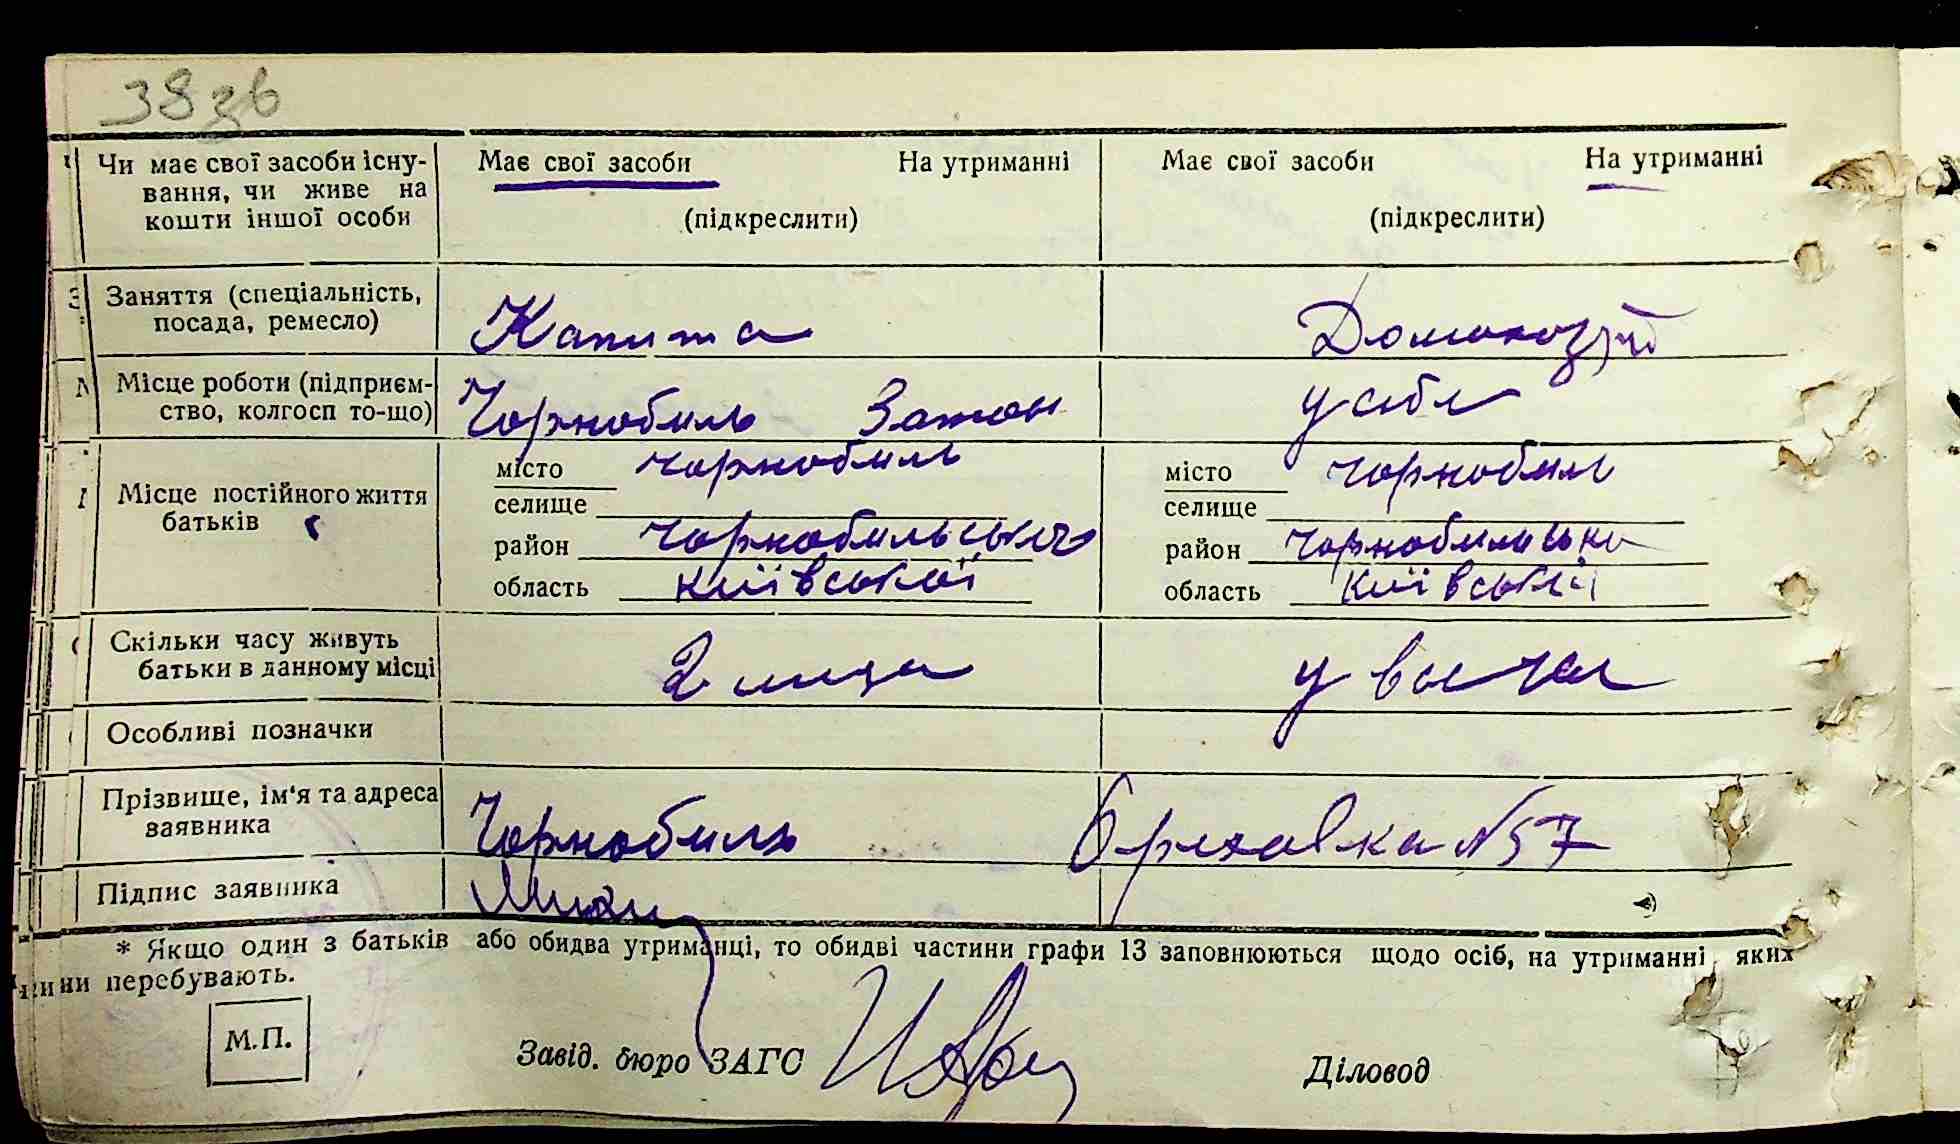 38 зв
Чи має свої засоби існу- Має свої засоби На утриманні Має свої засоби На утриманні
вання, чи живе на
кошти іншої особи (підкреслити) (підкреслити)
Заняття (спеціальність,
посада, ремесло)
Місце роботи (підприєм-
ство, колгосп то-що) Чорнобиль Затон
Місце постійного життя
батьків
місто чорнобиль місто чорнобиль
селище селище
район чорнобильського район
область київської область київській
Скільки часу живуть
батьки в данному місці 2 місяця
Особливі позначки
Прізвище, ім'я та адреса
заявника Чорнобиль N 57
Підпис заявника
* Якщо один з батьків або обидва утриманці, то обидві частини графи 13 заповнюються щодо осіб, на утриманні яких
перебувають.
М.П.
Завід. бюро ЗАГС Діловод